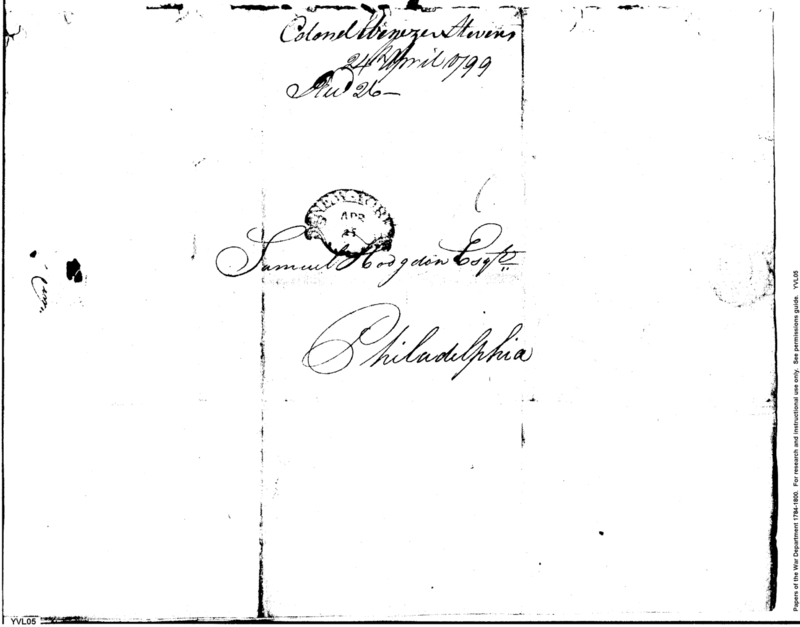 Colonel Ebenezer Stevens
24th April 1799
Recd 26—
NEW-YORK
APR
25
Samuel Hodgdon Esqr
Philadelphia
Papers of the War Department 1784-1800. For research and instructional use only. See permissions guide. YVL05
YVL05